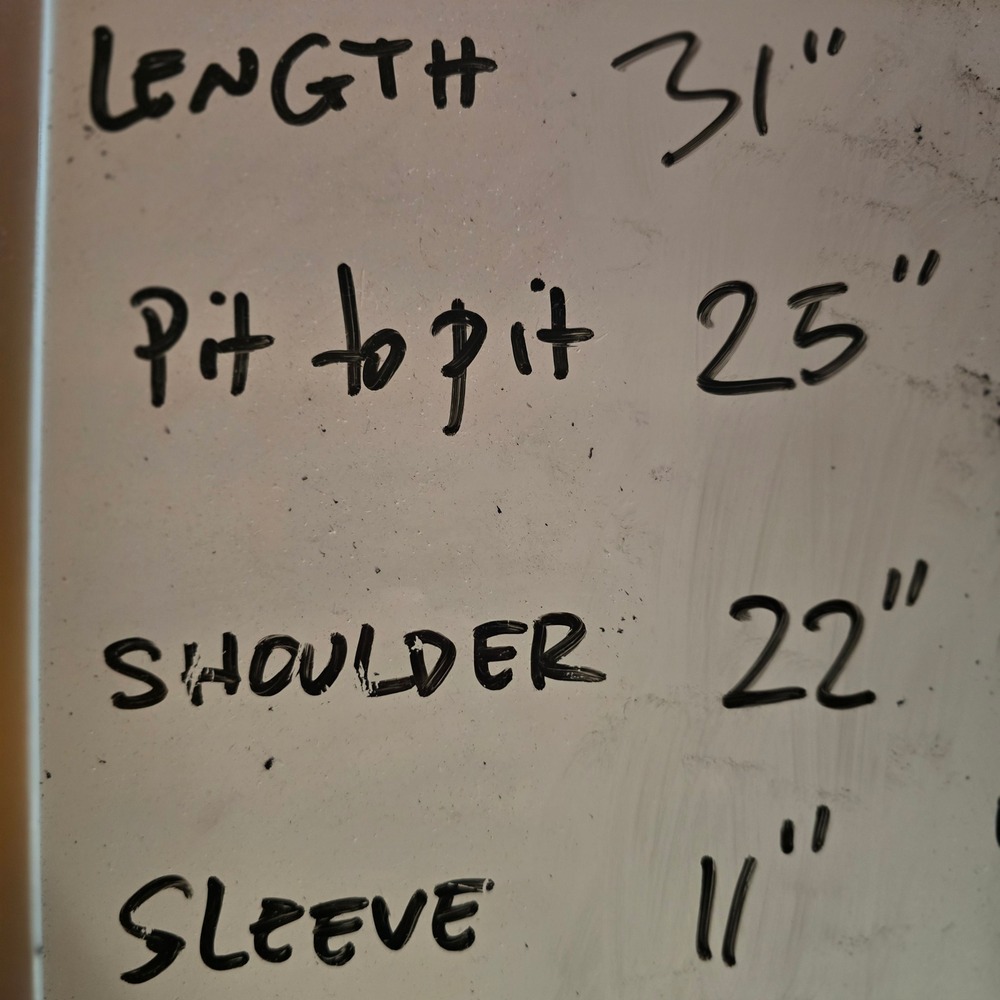 LENGTH 31"
Pit to pit 25"
SHOULDER 22"
SLEEVE 11"